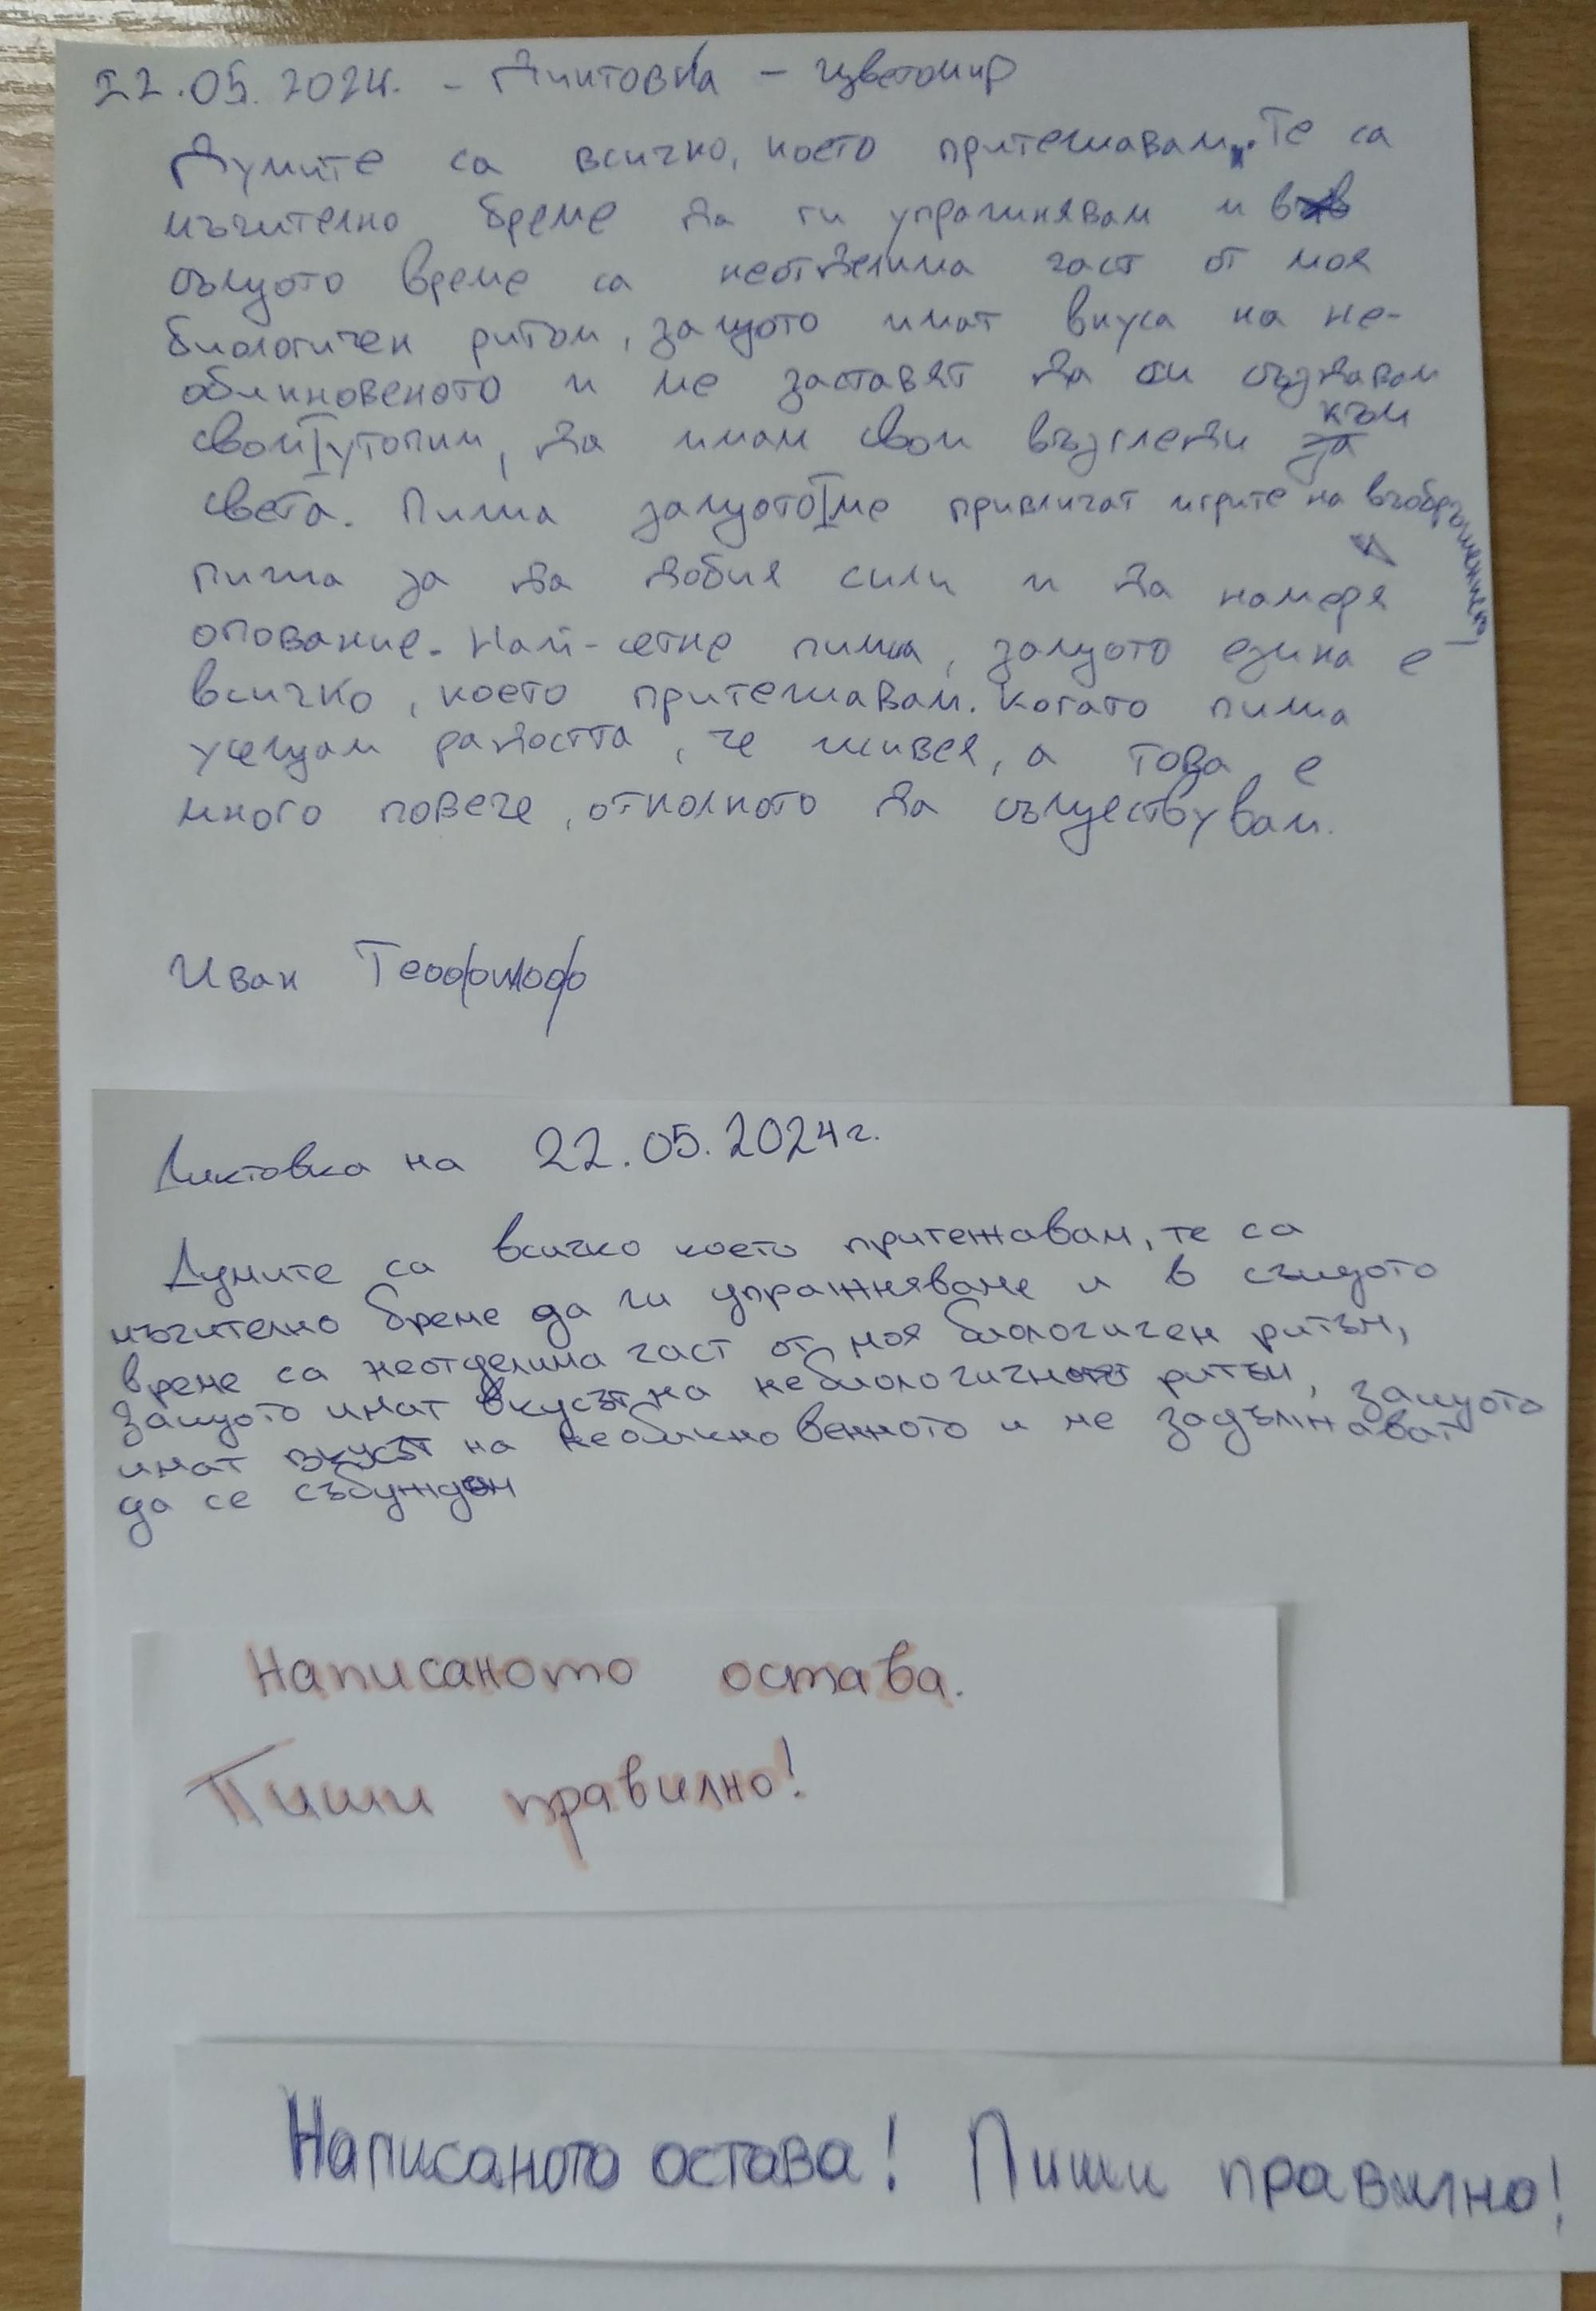 22.05.2024г. - Диктовка - Цветомир
Думите са всичко, което притежавам. Те са
мъчително бреме да ги упражнявам и в
същото време са неотделима част от моя
биологичен ритъм, защото имат вкуса на не-
обикновеното и ме заставят да си създавам
свои утопии, да имам свои възгледи към
света. Пиша защото ме привличат игрите на въображението,
пиша за да добия сили и да намеря
опование. Най-сетне пиша, защото езика е
всичко, което притежавам. Когато пиша
усещам радостта, че живея, а това е
много повече, отколкото да съществувам.
Иван Теофилоф
Диктовка на 22.05.2024г.
Думите са всичко което притежавам, те са
мъчително бреме да ги упражняваме и в същото
време са неотделима част от моя биологичен ритъм,
защото имат вкусът на небиологичното ритъм, защото
имат вкусът на необикновенното и ме задължават
да се събуждам
Написаното остава.
Пиши правилно!
Написаното остава! Пиши правилно!